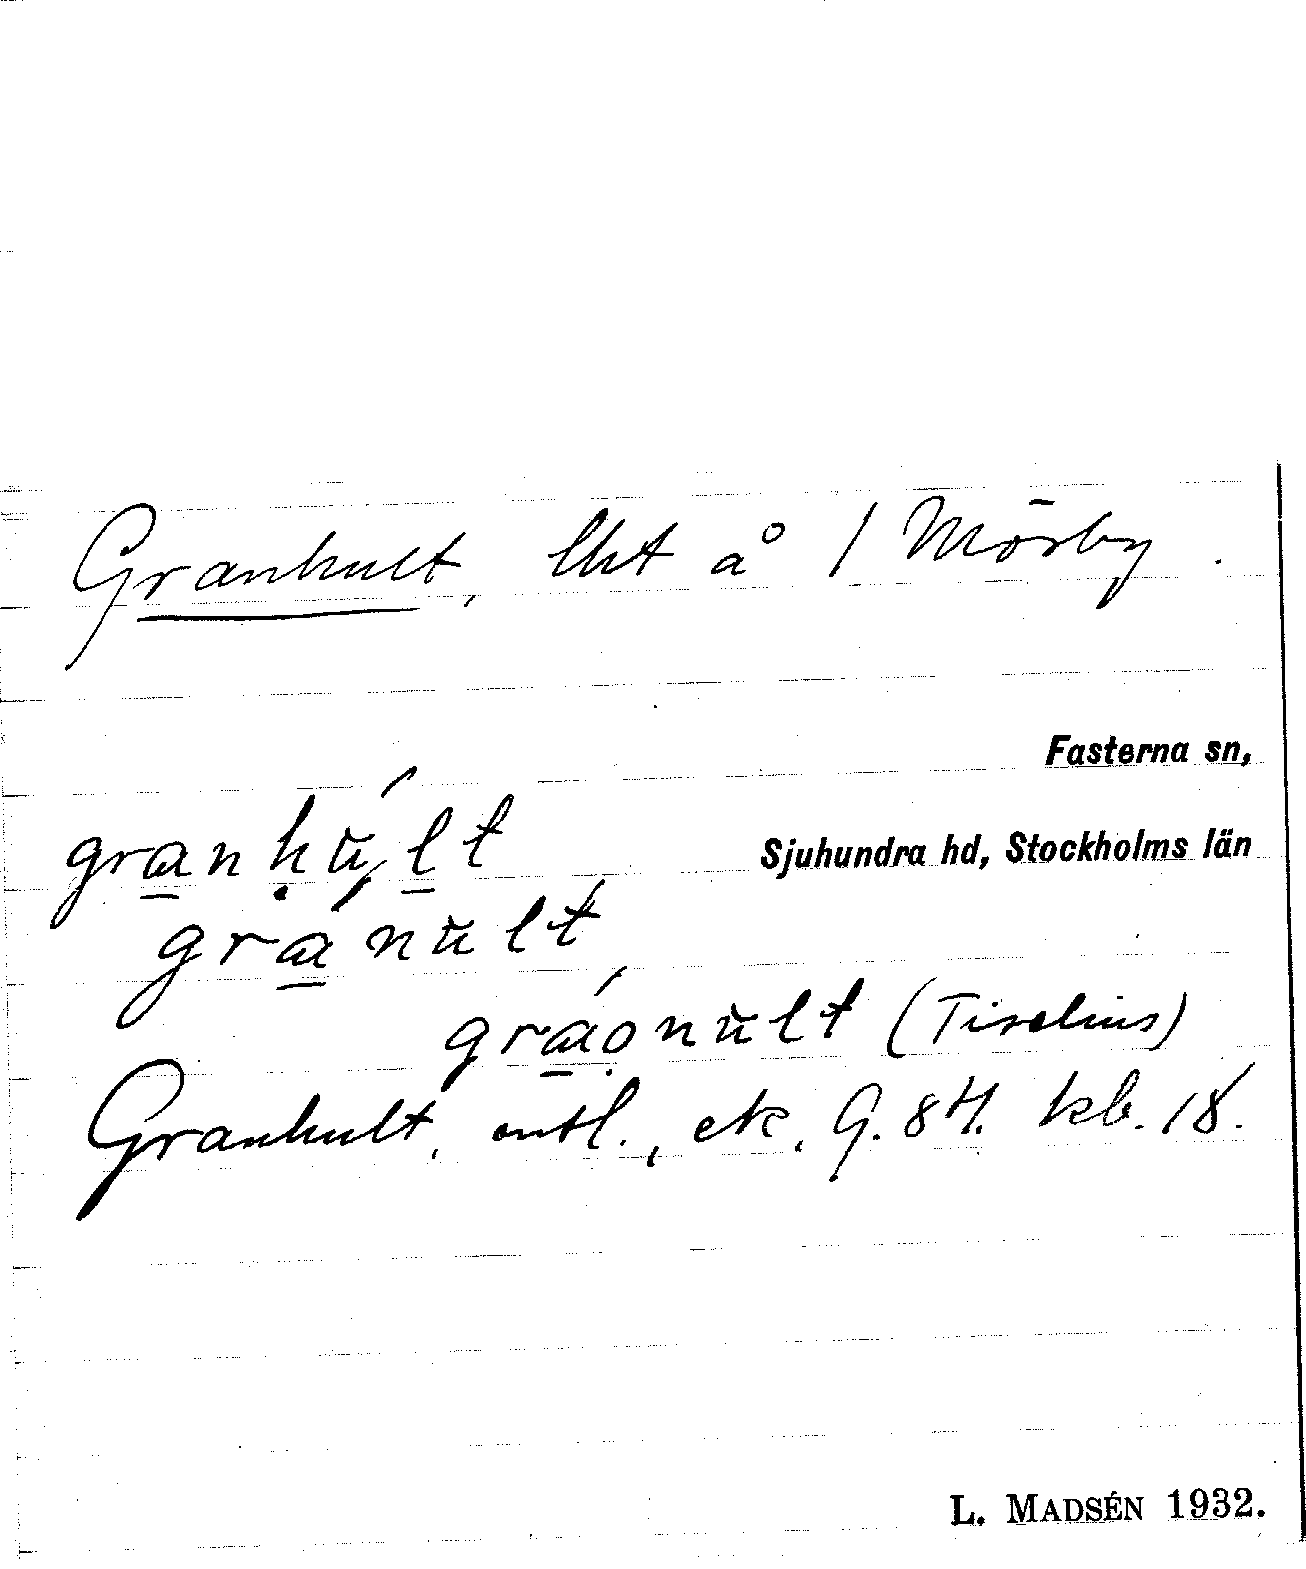 Granhult, lht å 1 Mörby.
Fasterna sn,
granhult
Sjuhundra hd, Stockholms län
granult,
graonult (Tiselius)
Granhult, ek. 9. 84. kb. 18.
L. MADSÉN 1932.